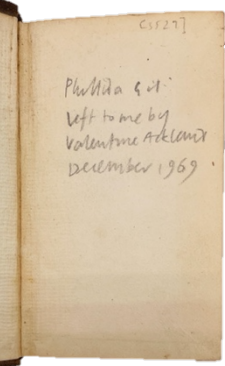 [S527]
Phyllida
left to me by
Valentine Ackland
December 1969.